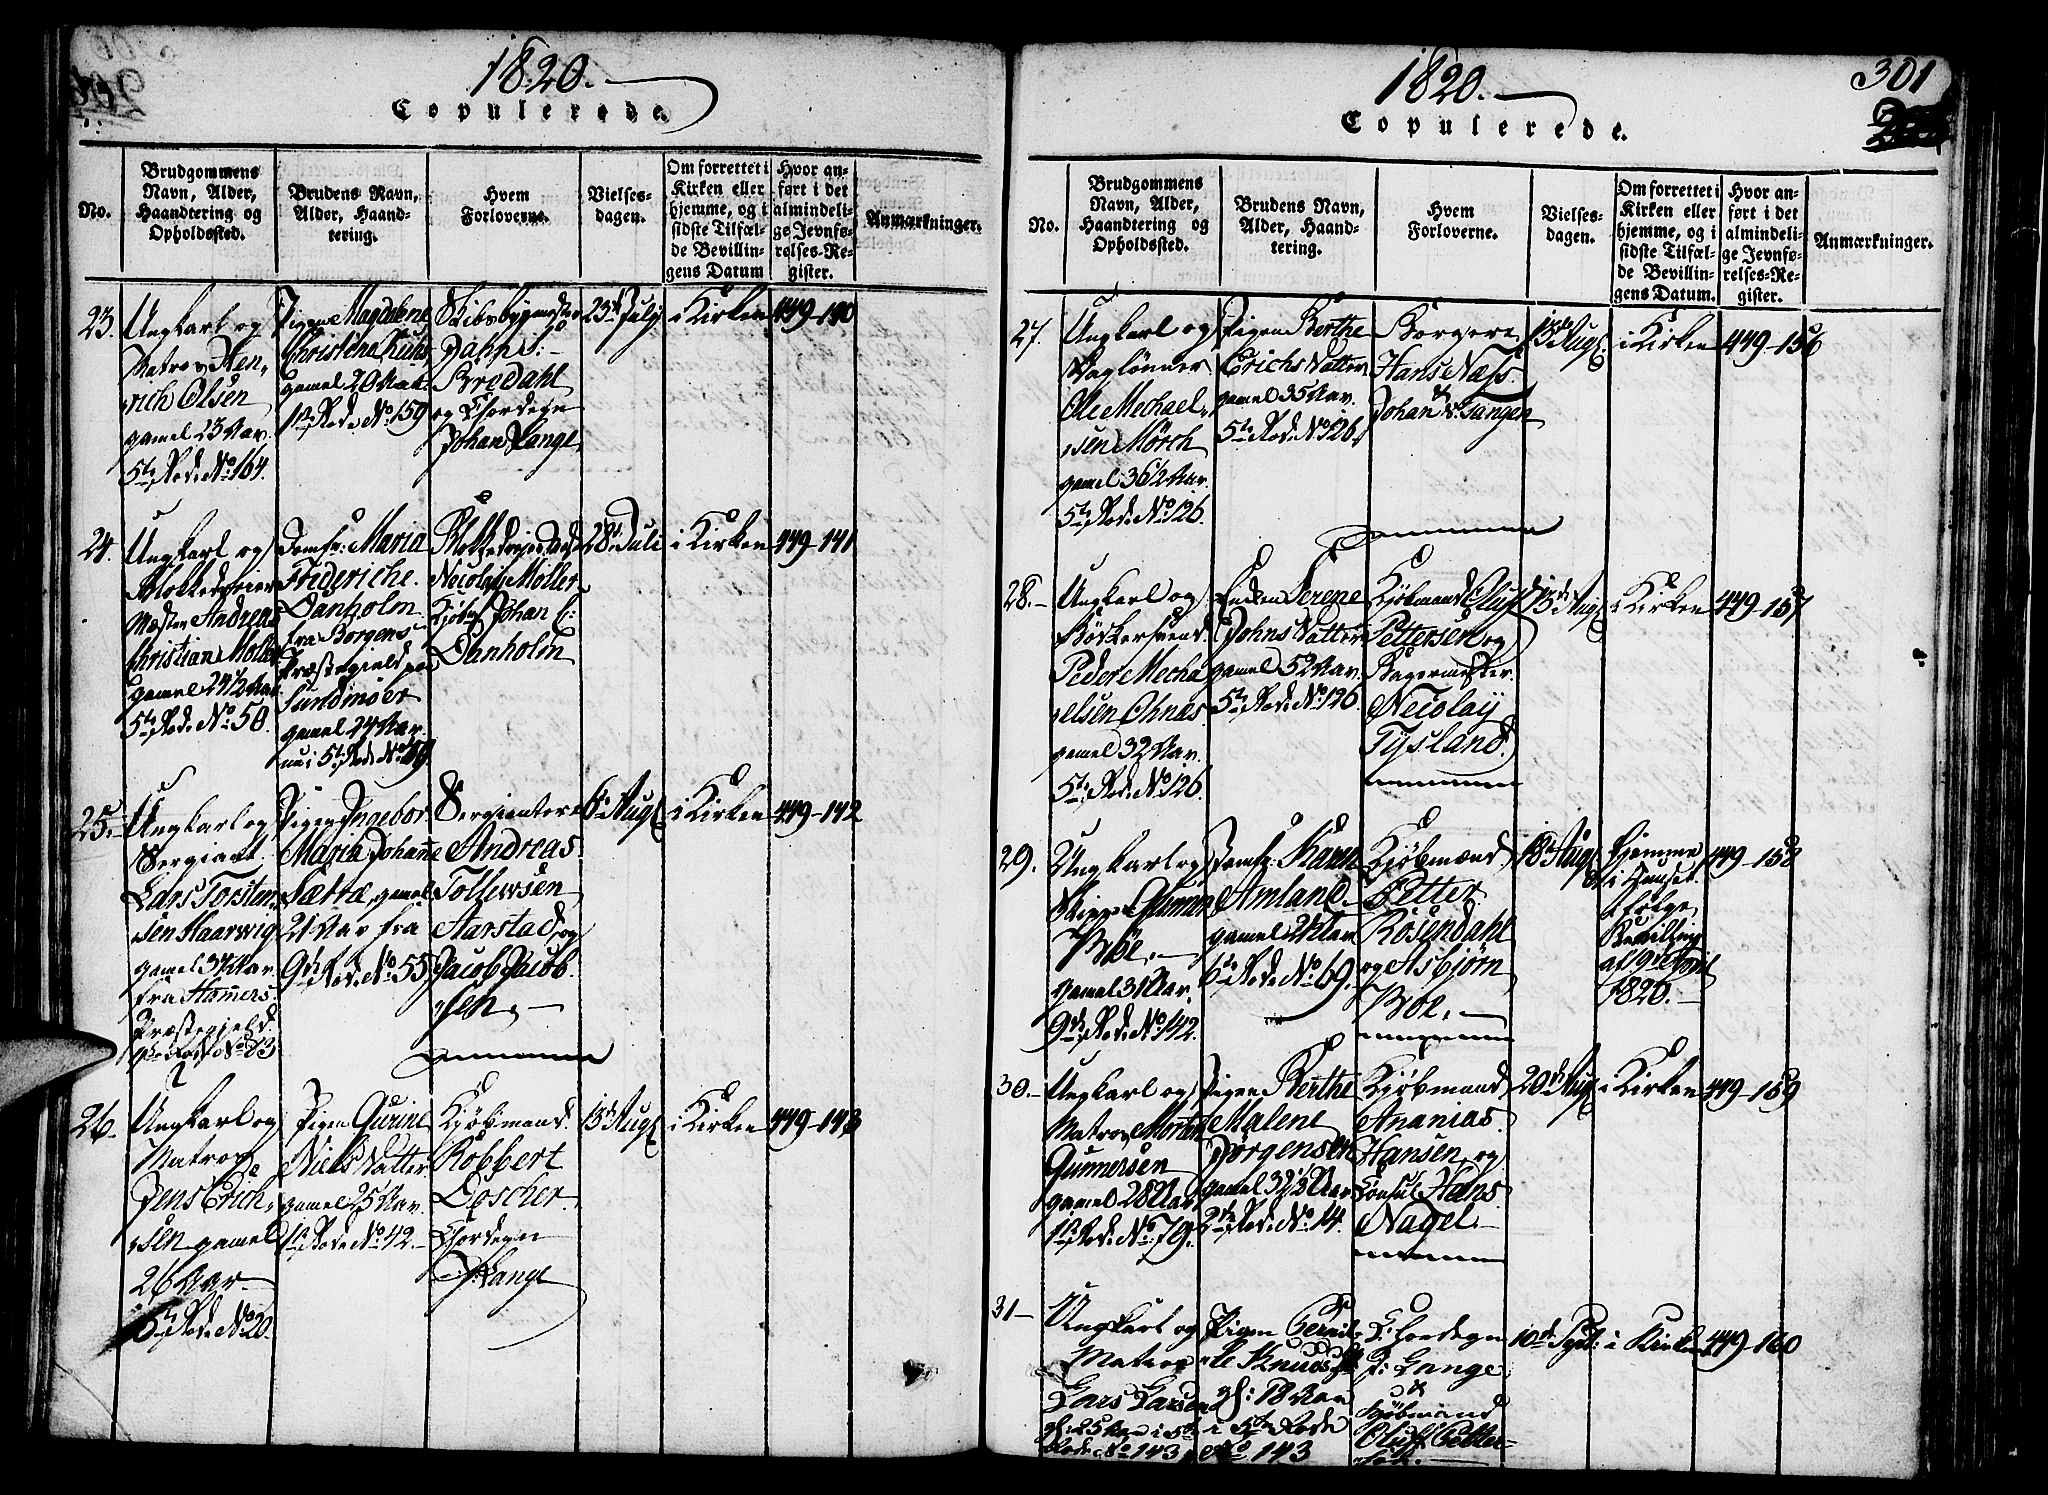 1820.
Copulerede.
No.
Brudgommens
Navn, Alder,
Haandtering og
Opholdssted.
Brudens Navn,
Alder, Haand-
tering.
Hvem
Forloverne.
Vielses-
dagen.
Om forrettet i
Kirken eller
hjemme, og i
sidste Tilfæl-
de Bevillin-
gens Datum
Hvor an-
ført i det
almindeli-
ge Jevnfø-
relses-Re-
gister.
Anmærkninger.
23.
Ungkarl og
Matros Hen-
rich Olsen
gamel 23 Aar.
5te Rode No 164.
Pigen Magdalene
Christine
gamel 20 Aar.
1ste Rode No 159
Skibsbygmester
Bredahl
og Chordegn
Johan Lange.
23de Julij
i Kirken
449-140
24.
Ungkarl og
Blokkedreier
Mester Andreas
Christian Møller
gamel 24 1/2 Aar.
5te Rode No 50.
Jomfr: Maria
Frideriche.
Danholm.
fra Borgens
Præstegield paa
Sundmøer
gamel 24 Aar.
nu i 5te Rode No 49.
Nicolay Møller
Johan C:
Danholm
28de Juli
i Kirken
449-141
25.
Ungkarl og
Sergiant
Lars Torsten-
sen Haarwig
gamel 34 Aar.
fra Hammers
Præstegield.
Rode No 83
Pigen Ingebor
Maria Johanne
Sættæ, gamel
21 Aar fra
9de Rode No 55.
Sergianterne
Andreas
Tollewsen
Aarstad og
Jacob Jacob-
sen.
6te Augt
i Kirken
449-142
26.
Ungkarl og
Matros
Jens Erich-
sen gamel
26 Aar
5te Rode No 20.
Pigen Gurine
Niels Datter
gamel 25 Aar.
1ste Rode No 42.
Kjøbmand.
Robbert
Doscher.
Chordegn
J. Lange
13de Augt
i Kirken
449-143
1820.
301
Copulerede.
No.
Brudgommens
Navn, Alder,
Haandtering og
Opholdssted.
Brudens Navn,
Alder, Haand-
tering.
Hvem
Forloverne.
Vielses-
dagen.
Om forrettet i
Kirken eller
hjemme, og i
sidste Tilfæl-
de Bevillin-
gens Datum.
Hvor an-
ført i det
almindeli-
ge Jevnfø-
relses-Re-
gister.
Anmærkninger.
27.
Ungkarl og
Daglønner
Ole Mechael-
sen Mörch
gamel 36 1/2 Aar.
5te Rode No 126.
Pigen Berthe
Erichs Datter
gamel 35 Aar.
5te Rode No 126.
Borgerne
Hans Næss.
Johan v. Tangen
13de Augt
i Kirken
449-156
28.
Ungkarl og
Bødkersvend.
Peder Mecha
elsen Ohnæs.
gamel 32 Aar.
5te Rode No 126.
Enken Serene
Johns Datter
gamel 52 Aar.
5te Rode No 126
Kjøbmand Oluf
Pettersen og
Bagermester.
Nicolay
Tysland.
13de Augt
i Kirken
449-157
29.
Ungkarl og
Skipper
Bøe.
gamel 31 Aar.
9de Rode No 142.
Jomfr: Karen
Amland.
gamel 24 Aar
6te Rode No 69.
Kjøbmænd
Petter
Rosendahl
og Asbjørn
Bøe.
18de Augt
hjemme
i Huuset
ifølge
Bevilling
af 19de April
1820.
449-158
30.
Ungkarl og
Matros Morten
Gunnersen
gamel 28 Aar
1ste Rode No 79.
Pigen Berthe
Malene
Jörgensen
gamel 32 1/2 Aar
2de Rode No 14.
Kjøbmand
Ananias.
Hansen, og
Consul Hans
Nagel.
20de Augt
i Kirken
449-159
31
Ungkarl og
Matros
Lars Larsen
gl: 25 Aar i 5te
Rode No 143
Pigen Pernil-
le Knuds
gl: 18 Aar
i 5te Rode
No 143
Chordegn
J: Lange
&
Kjøbmand
Oluff Petter-
sen.
10de Sept:
i Kirken
449-160